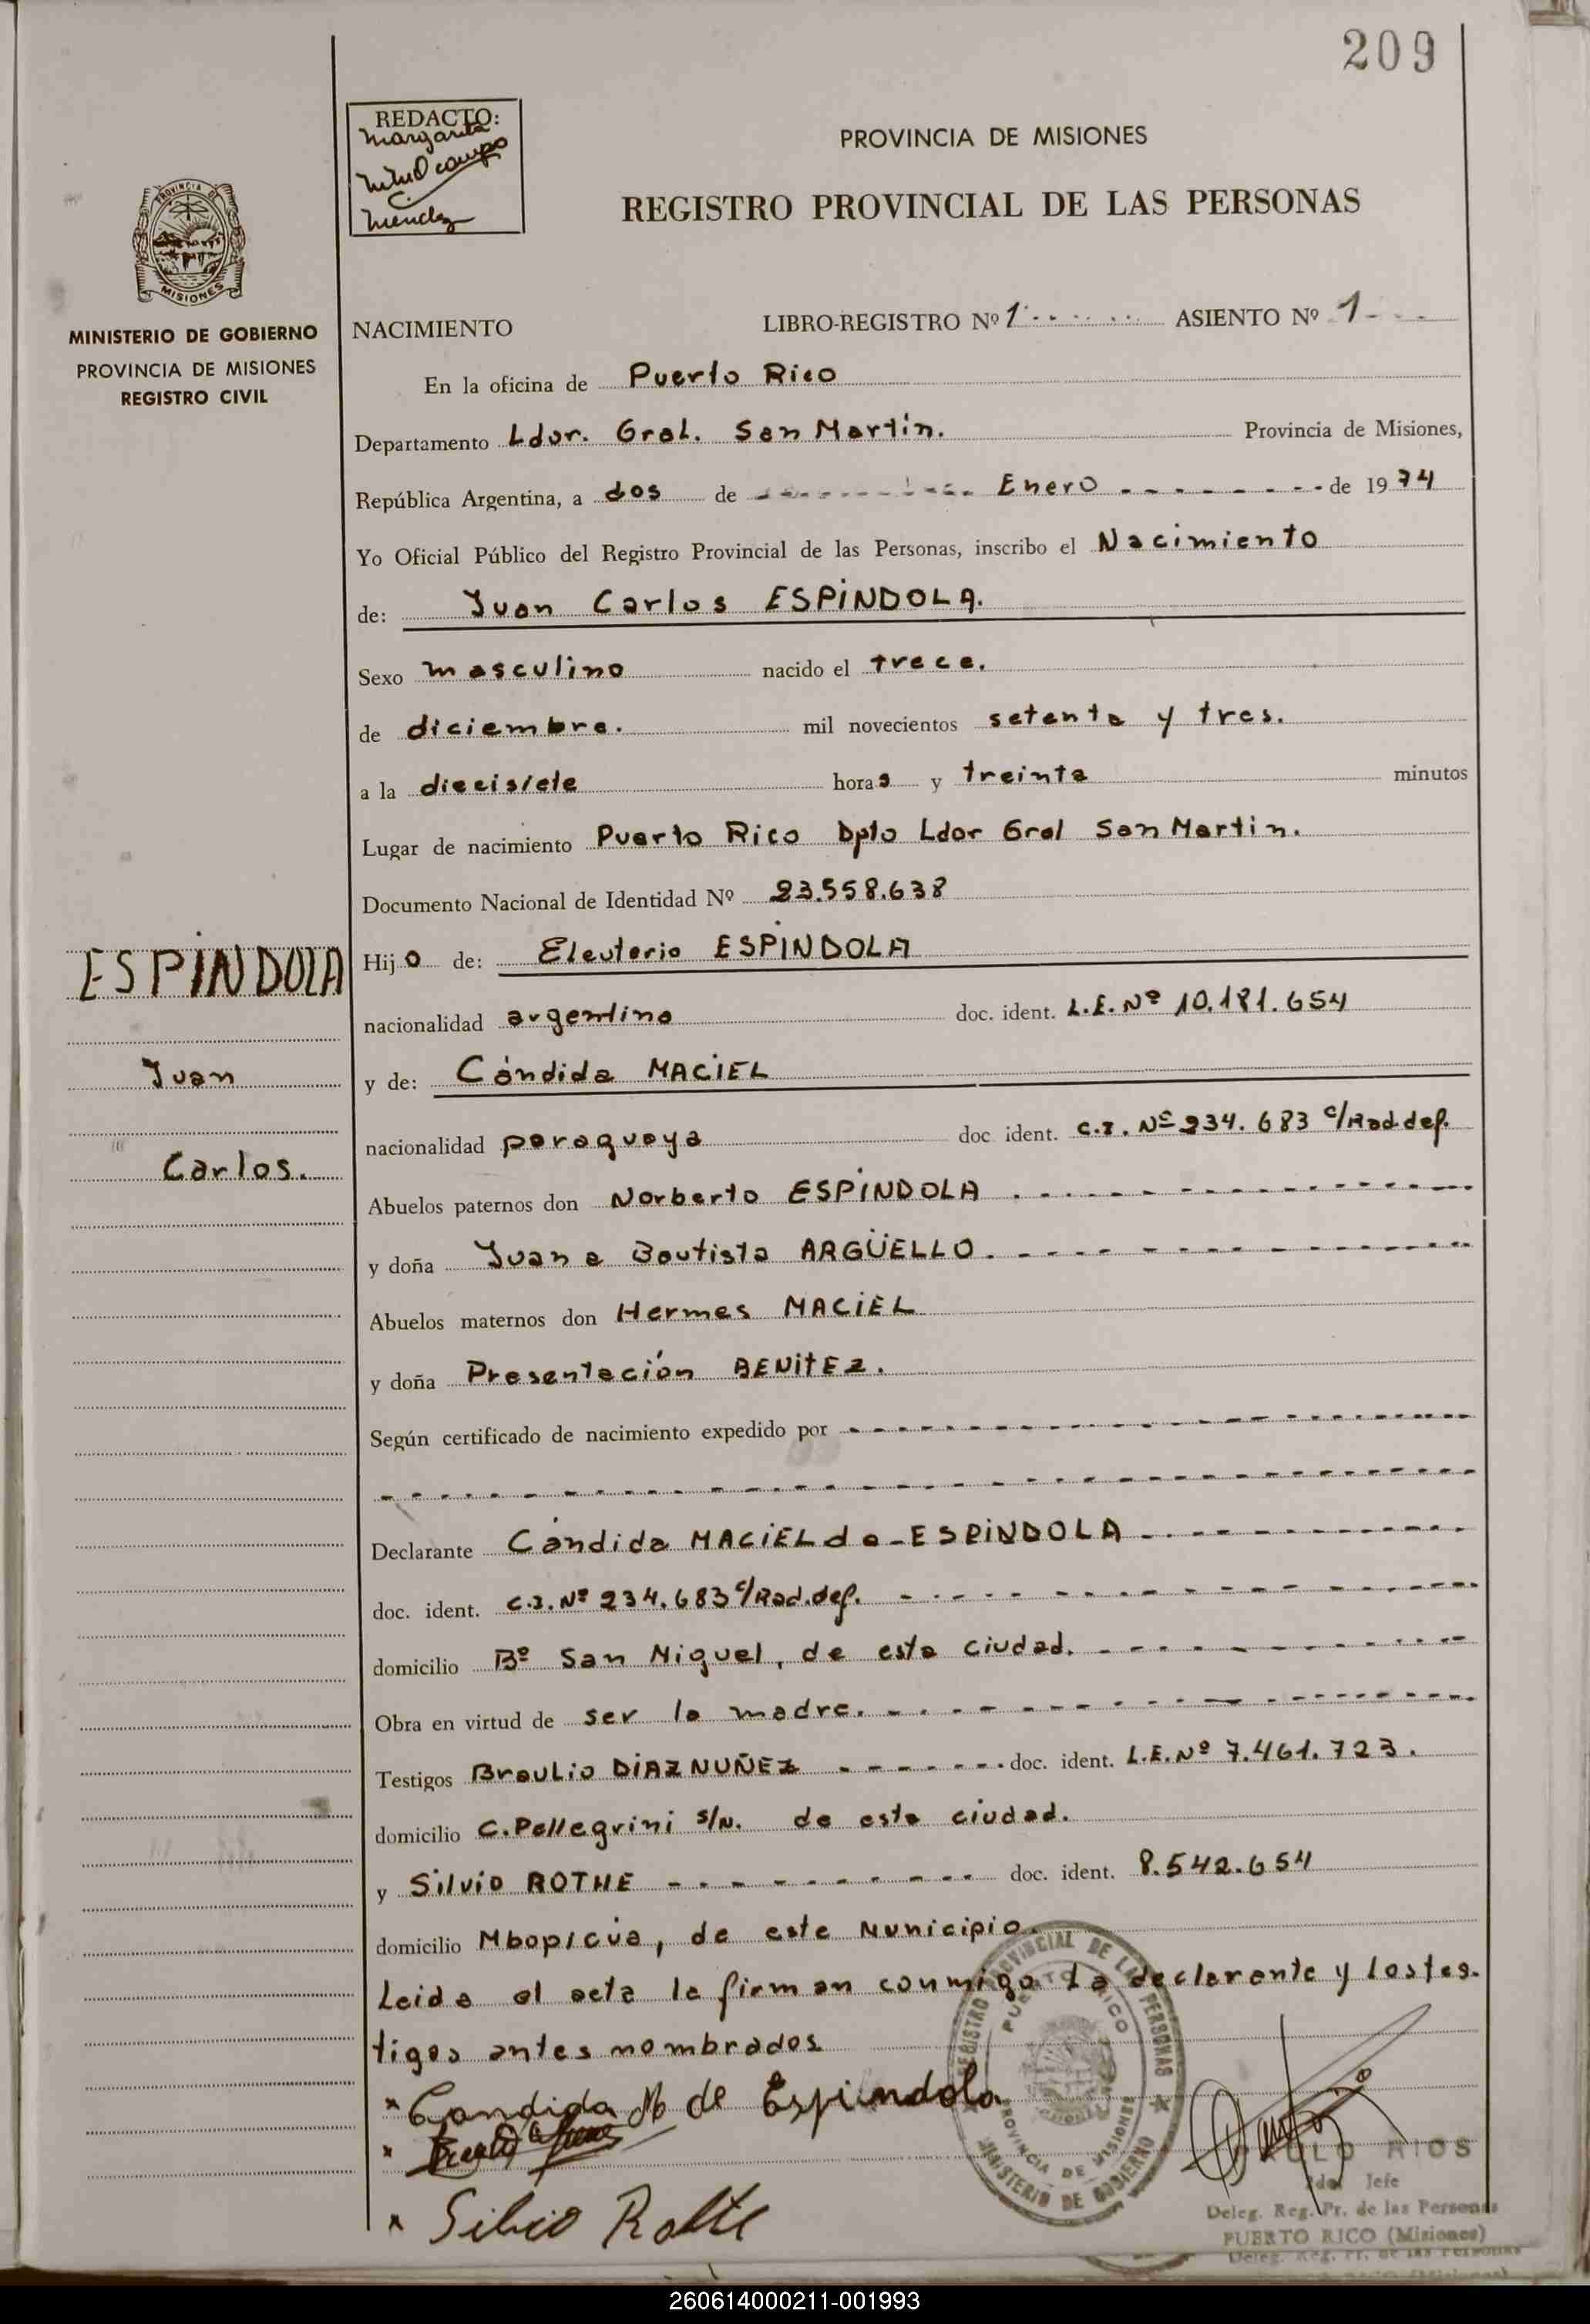 209
REDACTO:
Margarita
Mendez
PROVINCIA DE MISIONES
REGISTRO PROVINCIAL DE LAS PERSONAS
PROVINCIA DE
MISIONES
MINISTERIO DE GOBIERNO
PROVINCIA DE MISIONES
REGISTRO CIVIL
NACIMIENTO LIBRO-REGISTRO Nº 1 ASIENTO Nº 1
En la oficina de Puerto Rico
Departamento Ldor. Gral. San Martín. Provincia de Misiones,
República Argentina, a dos de Enero de 1974
Yo Oficial Público del Registro Provincial de las Personas, inscribo el Nacimiento
de: Juan Carlos ESPÍNDOLA.
Sexo masculino nacido el trece.
de diciembre. mil novecientos setenta y tres.
a la diecisiete horas y treinta minutos
Lugar de nacimiento Puerto Rico Dpto Ldor Gral San Martin.
Documento Nacional de Identidad Nº 23.558.638
ESPÍNDOLA
Juan
Carlos.
Hijo de: Eleuterio ESPÍNDOLA
nacionalidad argentina doc. ident. L.E. Nº 10.181.654
y de: Cándida MACIEL
nacionalidad paraguaya doc ident. C.I. Nº 234.683 c/Rad.def.
Abuelos paternos don Norberto ESPÍNDOLA
y doña Juana Bautista ARGÜELLO.
Abuelos maternos don Hermes MACIEL
y doña Presentación BENITEZ.
Según certificado de nacimiento expedido por
Declarante Cándida MACIEL de ESPÍNDOLA
doc. ident. C.I. Nº 234.683 c/Rad.def.
domicilio Bº San Miguel, de esta ciudad.
Obra en virtud de ser la madre.
Testigos Braulio DIAZ NUÑEZ doc. ident. L.E. Nº 7.461.723.
domicilio C. Pellegrini s/n. de esta ciudad.
y Silvio ROTHE doc. ident. 8.542.654
domicilio Mbopicuá, de este Municipio.
Leida el acta la firman conmigo la declarante y los tes-
tigos antes nombrados
Candida M de Espindola
Silvio Rothe
REGISTRO PROVINCIAL DE LAS PERSONAS
PUERTO RICO
PROVINCIA DE MISIONES
MINISTERIO DE GOBIERNO
RIOS
Jefe
Deleg. Reg. Pr. de las Personas
PUERTO RICO (Misiones)
Deleg. Reg. Pr. de las Personas
260614000211-001993